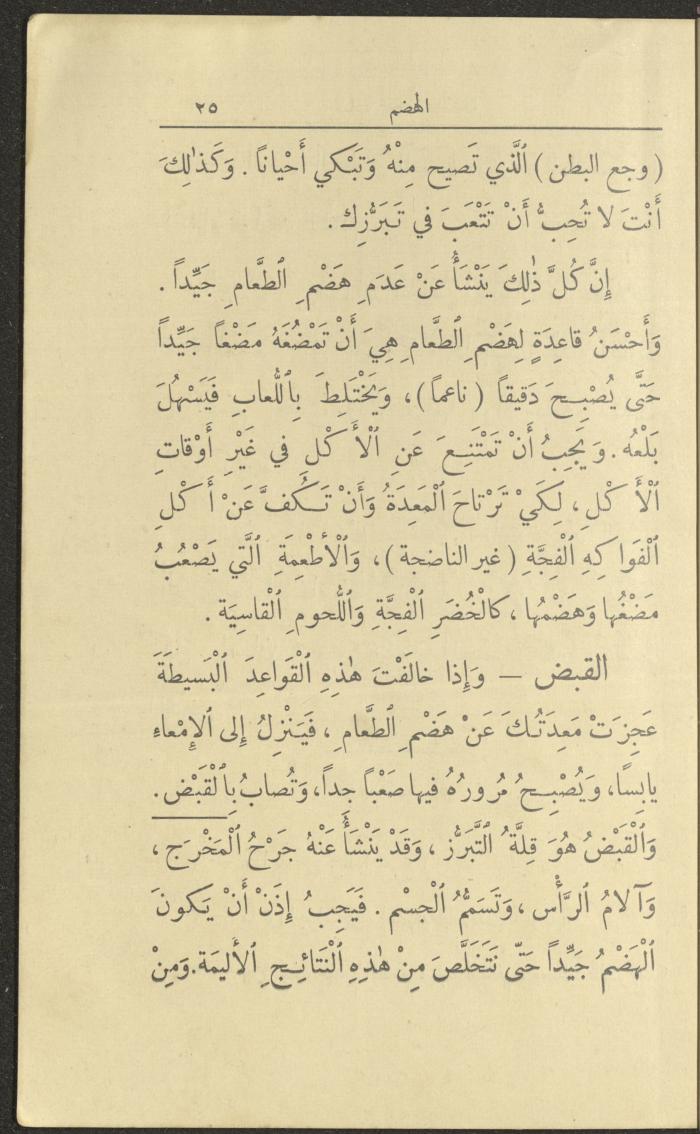 الهضم ٢٥
(وجع البطن) ٱلَّذي تَصيح مِنْهُ وَتَبْكي أَحْياناً. وَكَذٰلِكَ
أَنْتَ لا تُحِبُّ أَنْ تَتْعَبَ في تَبَرُّزِك.
إِنَّ كُلَّ ذٰلِكَ يَنْشَأُ عَنْ عَدَمِ هَضْمِ ٱلطَّعامِ جَيِّداً.
وَأَحْسَنُ قاعِدَةٍ لِهَضْمِ ٱلطَّعامِ هِيَ أَنْ تَمْضُغَهُ مَضْغاً جَيِّداً
حَتَّى يُصْبِحَ دَقيقاً (ناعماً)، وَيَخْتَلِطَ بِٱللُّعابِ فَيَسْهُلَ
بَلْعُه. وَيَجِبُ أَنْ تَمْتَنِعَ عَنِ ٱلْأَكْلِ في غَيْرِ أَوْقاتِ
ٱلْأَكْلِ، لِكَيْ تَرْتاحَ ٱلْمَعِدَةُ وَأَنْ تَكُفَّ عَنْ أَكْلِ
ٱلْفَواكِهِ ٱلْفِجَّةِ (غير الناضجة)، وَٱلْأَطْعِمَةِ ٱلَّتي يَصْعُبُ
مَضْغُها وَهَضْمُها، كالْخُضَرِ ٱلْفِجَّةِ وَٱللُّحومِ ٱلْقاسِيَة.
القبض – وَإِذا خالَفْتَ هٰذِهِ ٱلْقَواعِدَ ٱلْبَسيطَةَ
عَجِزَتْ مَعِدَتُكَ عَنْ هَضْمِ ٱلطَّعامِ، فَيَنْزِلُ إِلى ٱلإِمْعاءِ
يابِسًا، وَيُصْبِحُ مُرورُهُ فيها صَعْباً جداً، وَتُصابُ بِٱلْقَبْض.
وَٱلْقَبْضُ هُوَ قِلَّةُ ٱلتَّبَرُّز، وَقَدْ يَنْشَأُ عَنْهُ جَرْحُ ٱلْمَخْرَج،
وَآلامُ ٱلرَّأْس، وَتَسَمُّمُ ٱلْجِسْم. فَيَجِبُ إِذَنْ أَنْ يَكونَ
ٱلْهَضْمُ جَيِّداً حَتّى نَتَخَلَّصَ مِنْ هٰذِهِ ٱلْنَتائِجِ ٱلأَليمَة. وَمِنْ